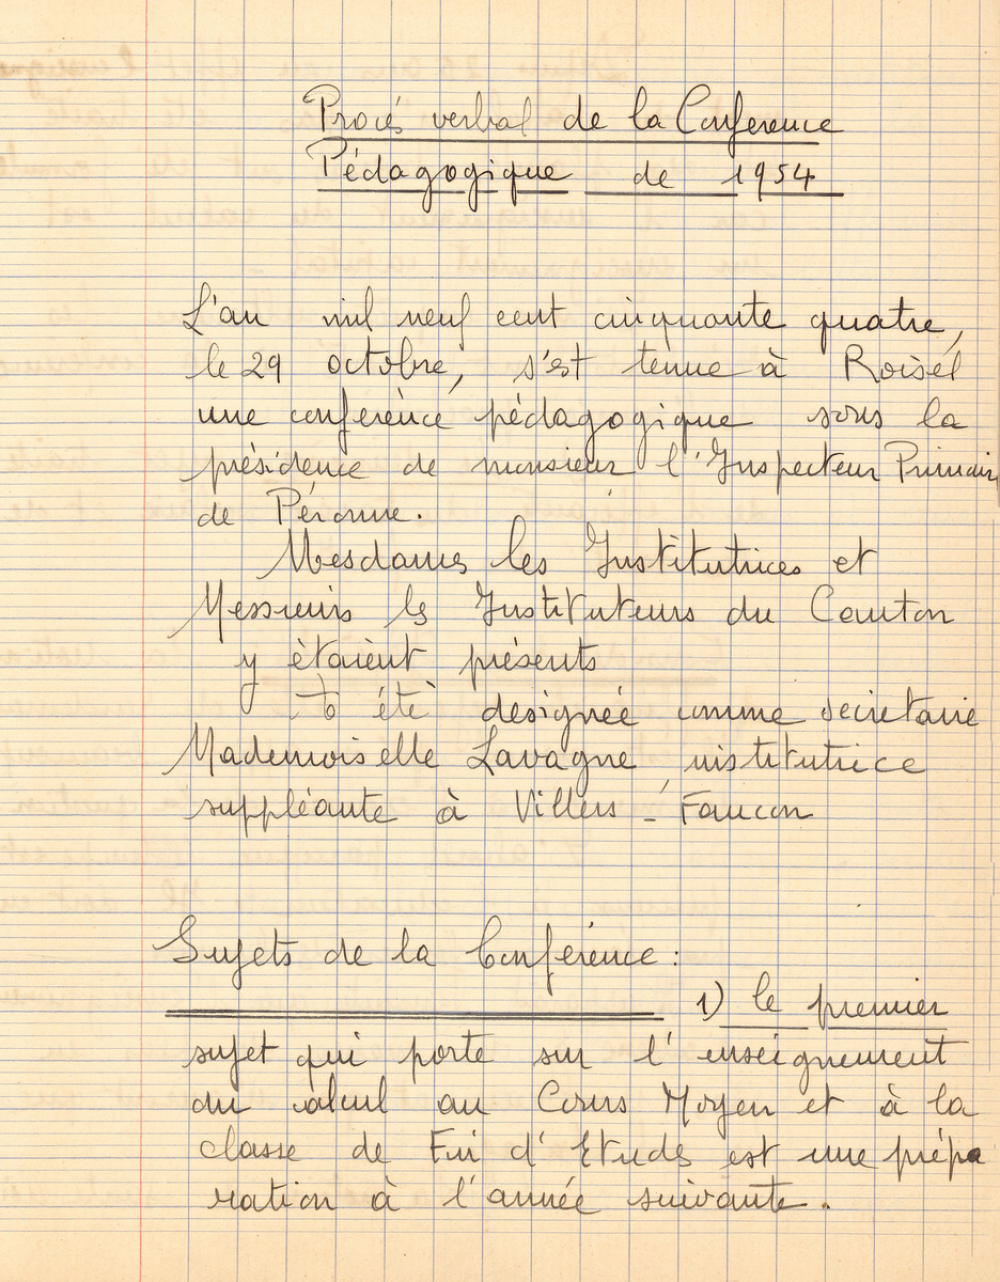 Procés verbal de la Conference
Pédagogique de 1954
L'an mil neuf cent cinquante quatre,
le 29 octobre, s'est tenue à Roisel
une conférence pédagogique sous la
présidence de monsieur l'Inspecteur Primaire
de Péronne.
Mesdames les Institutrices et
Messieurs les Instituteurs du Canton
y étaient présents
a été désignée comme secrétaire
Mademoiselle Lavagne, institutrice
suppléante à Villers - Faucon
Sujets de la Conférence :
1) le premier
sujet qui porte sur l'enseignement
du calcul au Cours Moyen et à la
classe de Fin d'Etudes est une prépa
ration à l'année suivante.